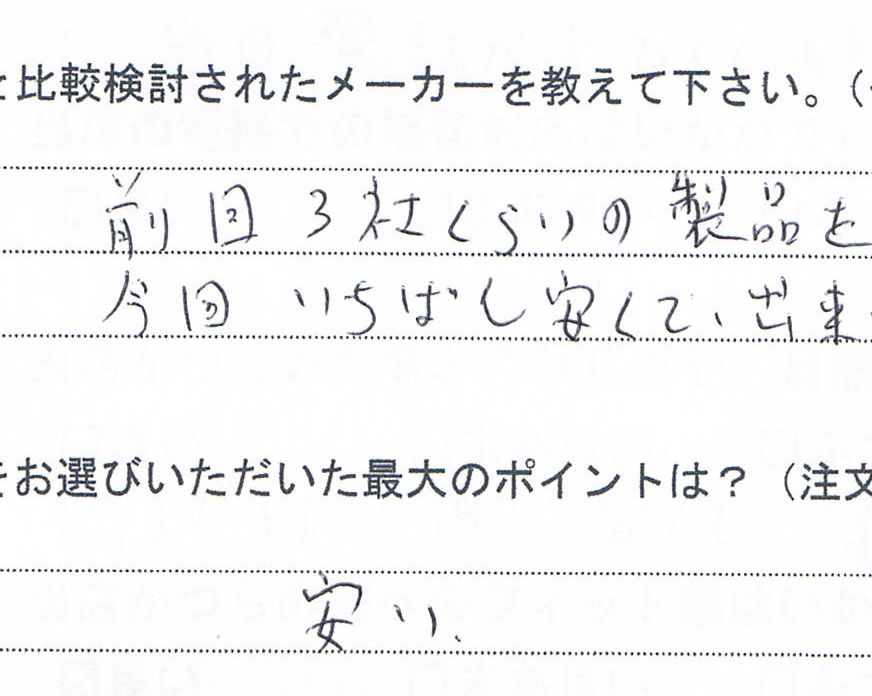 と比較検討されたメーカーを教えて下さい。（
前回3社くらいの製品を
今回いちばん安くて、出来
をお選びいただいた最大のポイントは？（注文
安い.